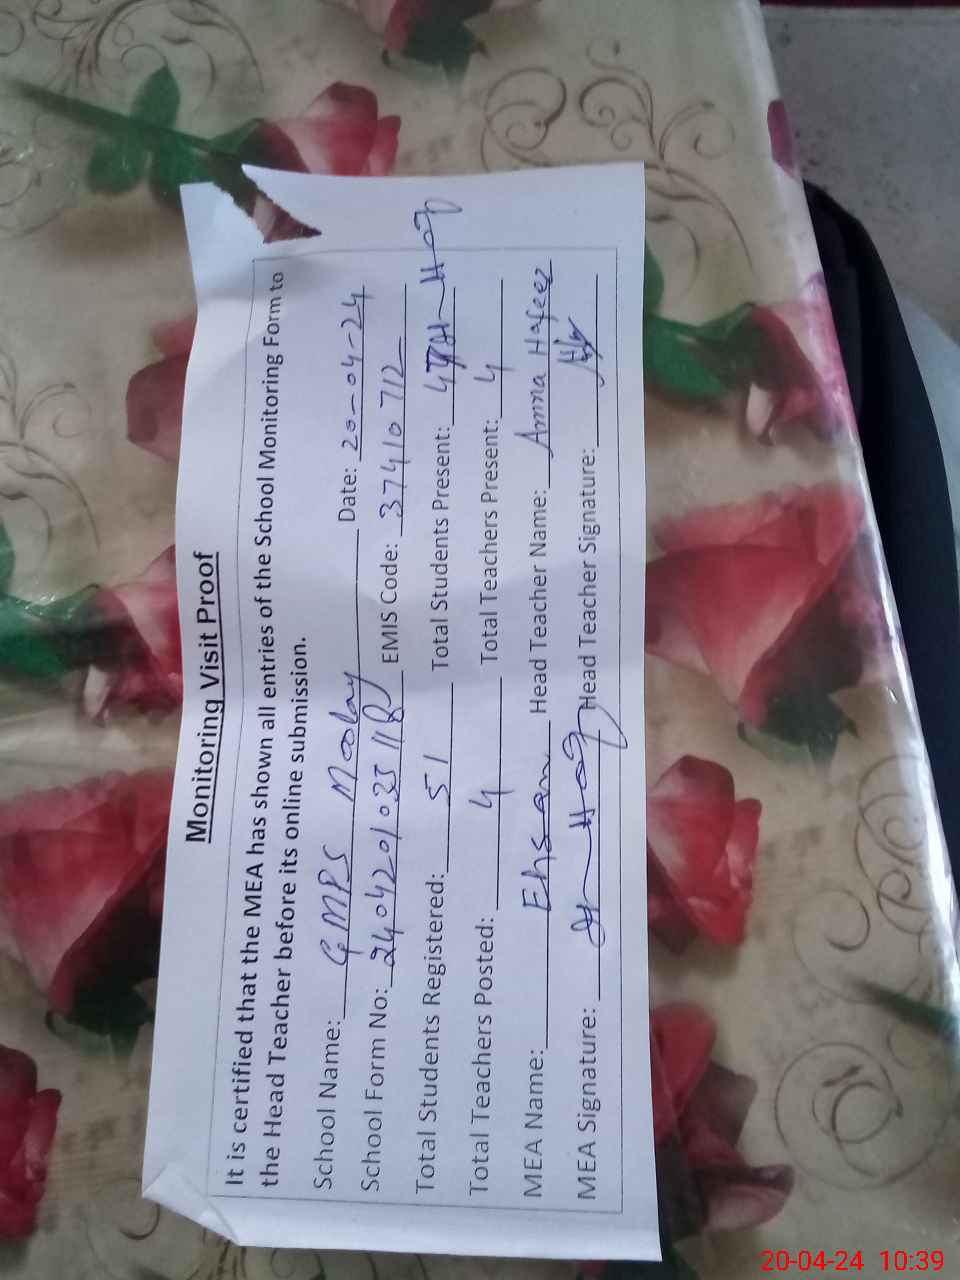 Monitoring Visit Proof
It is certified that the MEA has shown all entries of the School Monitoring Form to
the Head Teacher before its online submission.
School Name: GMPS Moolay Date: 20-04-24
School Form No: 2404201035118 EMIS Code: 37410712
Total Students Registered: 51 Total Students Present:
Total Teachers Posted: 4 Total Teachers Present: 4
MEA Name: Ehsan Head Teacher Name: Amna Hafeez
MEA Signature: Head Teacher Signature:
20-04-24 10:39